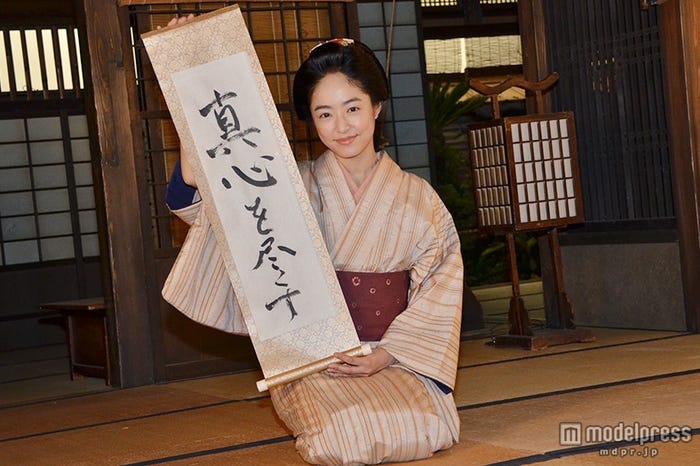 真心を尽す
modelpress
mdpr.jp